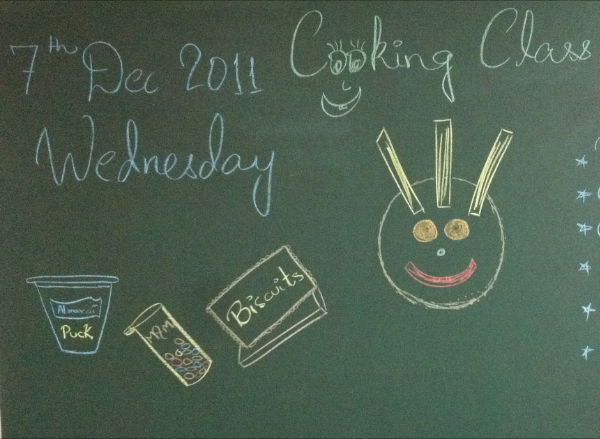 7th Dec 2011
Cooking Class
Wednesday
Almarai
Puck
M&M
Biscuits